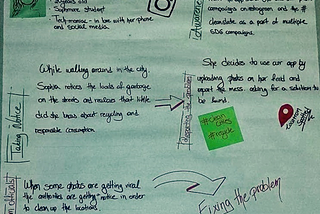 Sophmore student
Tech maniac - in love with her phone
and social media.
campaigns on instagram and the #
cleanlake as a part of multiple
SDG campaigns.
While walking around in the city
Sophia notices the loads of garbage
on the streets and realizes that little
did she know about recycling and
responsible consumption.
Today Notice
She decides to use our app by
uploading photos on her feed and
report the mess. asking for a solution to
be found.
#clean
cities
#recycle
Location
When some photos are getting viral
the authorities are getting notice in order
to clean up the locations
Fixing the problem